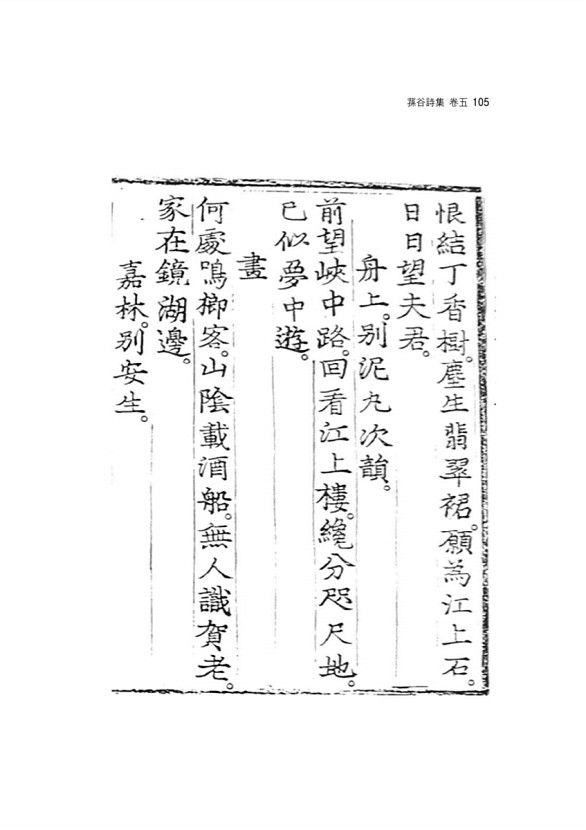 蓀谷詩集 卷五 105
恨結丁香樹。塵生翡翠裙。願爲江上石。
日日望夫君。
舟上。別泥丸次韻。
前望峽中路。回看江上樓。纔分咫尺地。
已似夢中遊。
畫
何處鳴榔客。山陰載酒船。無人識賀老。
家在鏡湖邊。
嘉林。別安生。